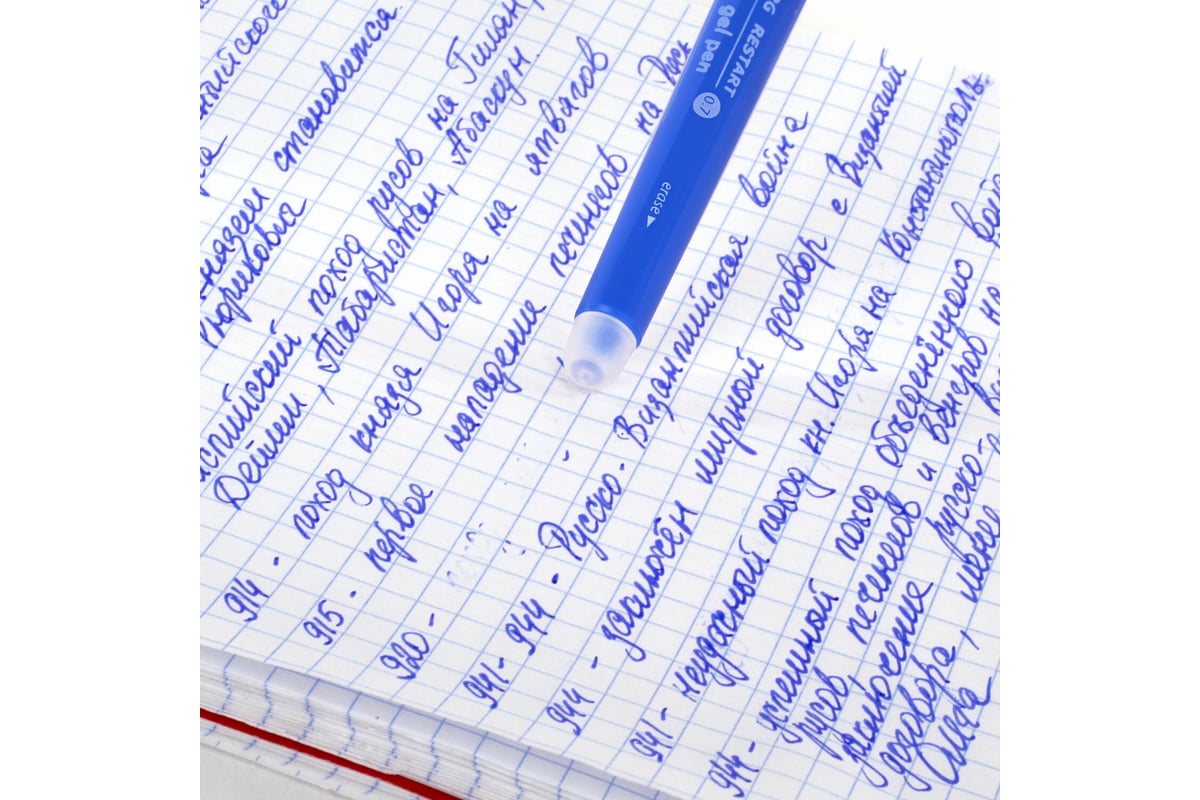 становится
Рюриковича
поход русов на Гилян,
Дейлем, Табаристан, Абаскун.
914 - поход князя Игоря на ятвягов
915 - первое нападение печенегов на Русь
920 -
941 - 944 - Русско - Византийская война
944 - заключён мирный договор с Византией
941 - неудачный поход кн. Игоря на Константинополь
944 - успешный поход объединённого
русов, печенегов и венгров на
заключение русско-
договора, менее
RESTART
gel pen
0.7
erase